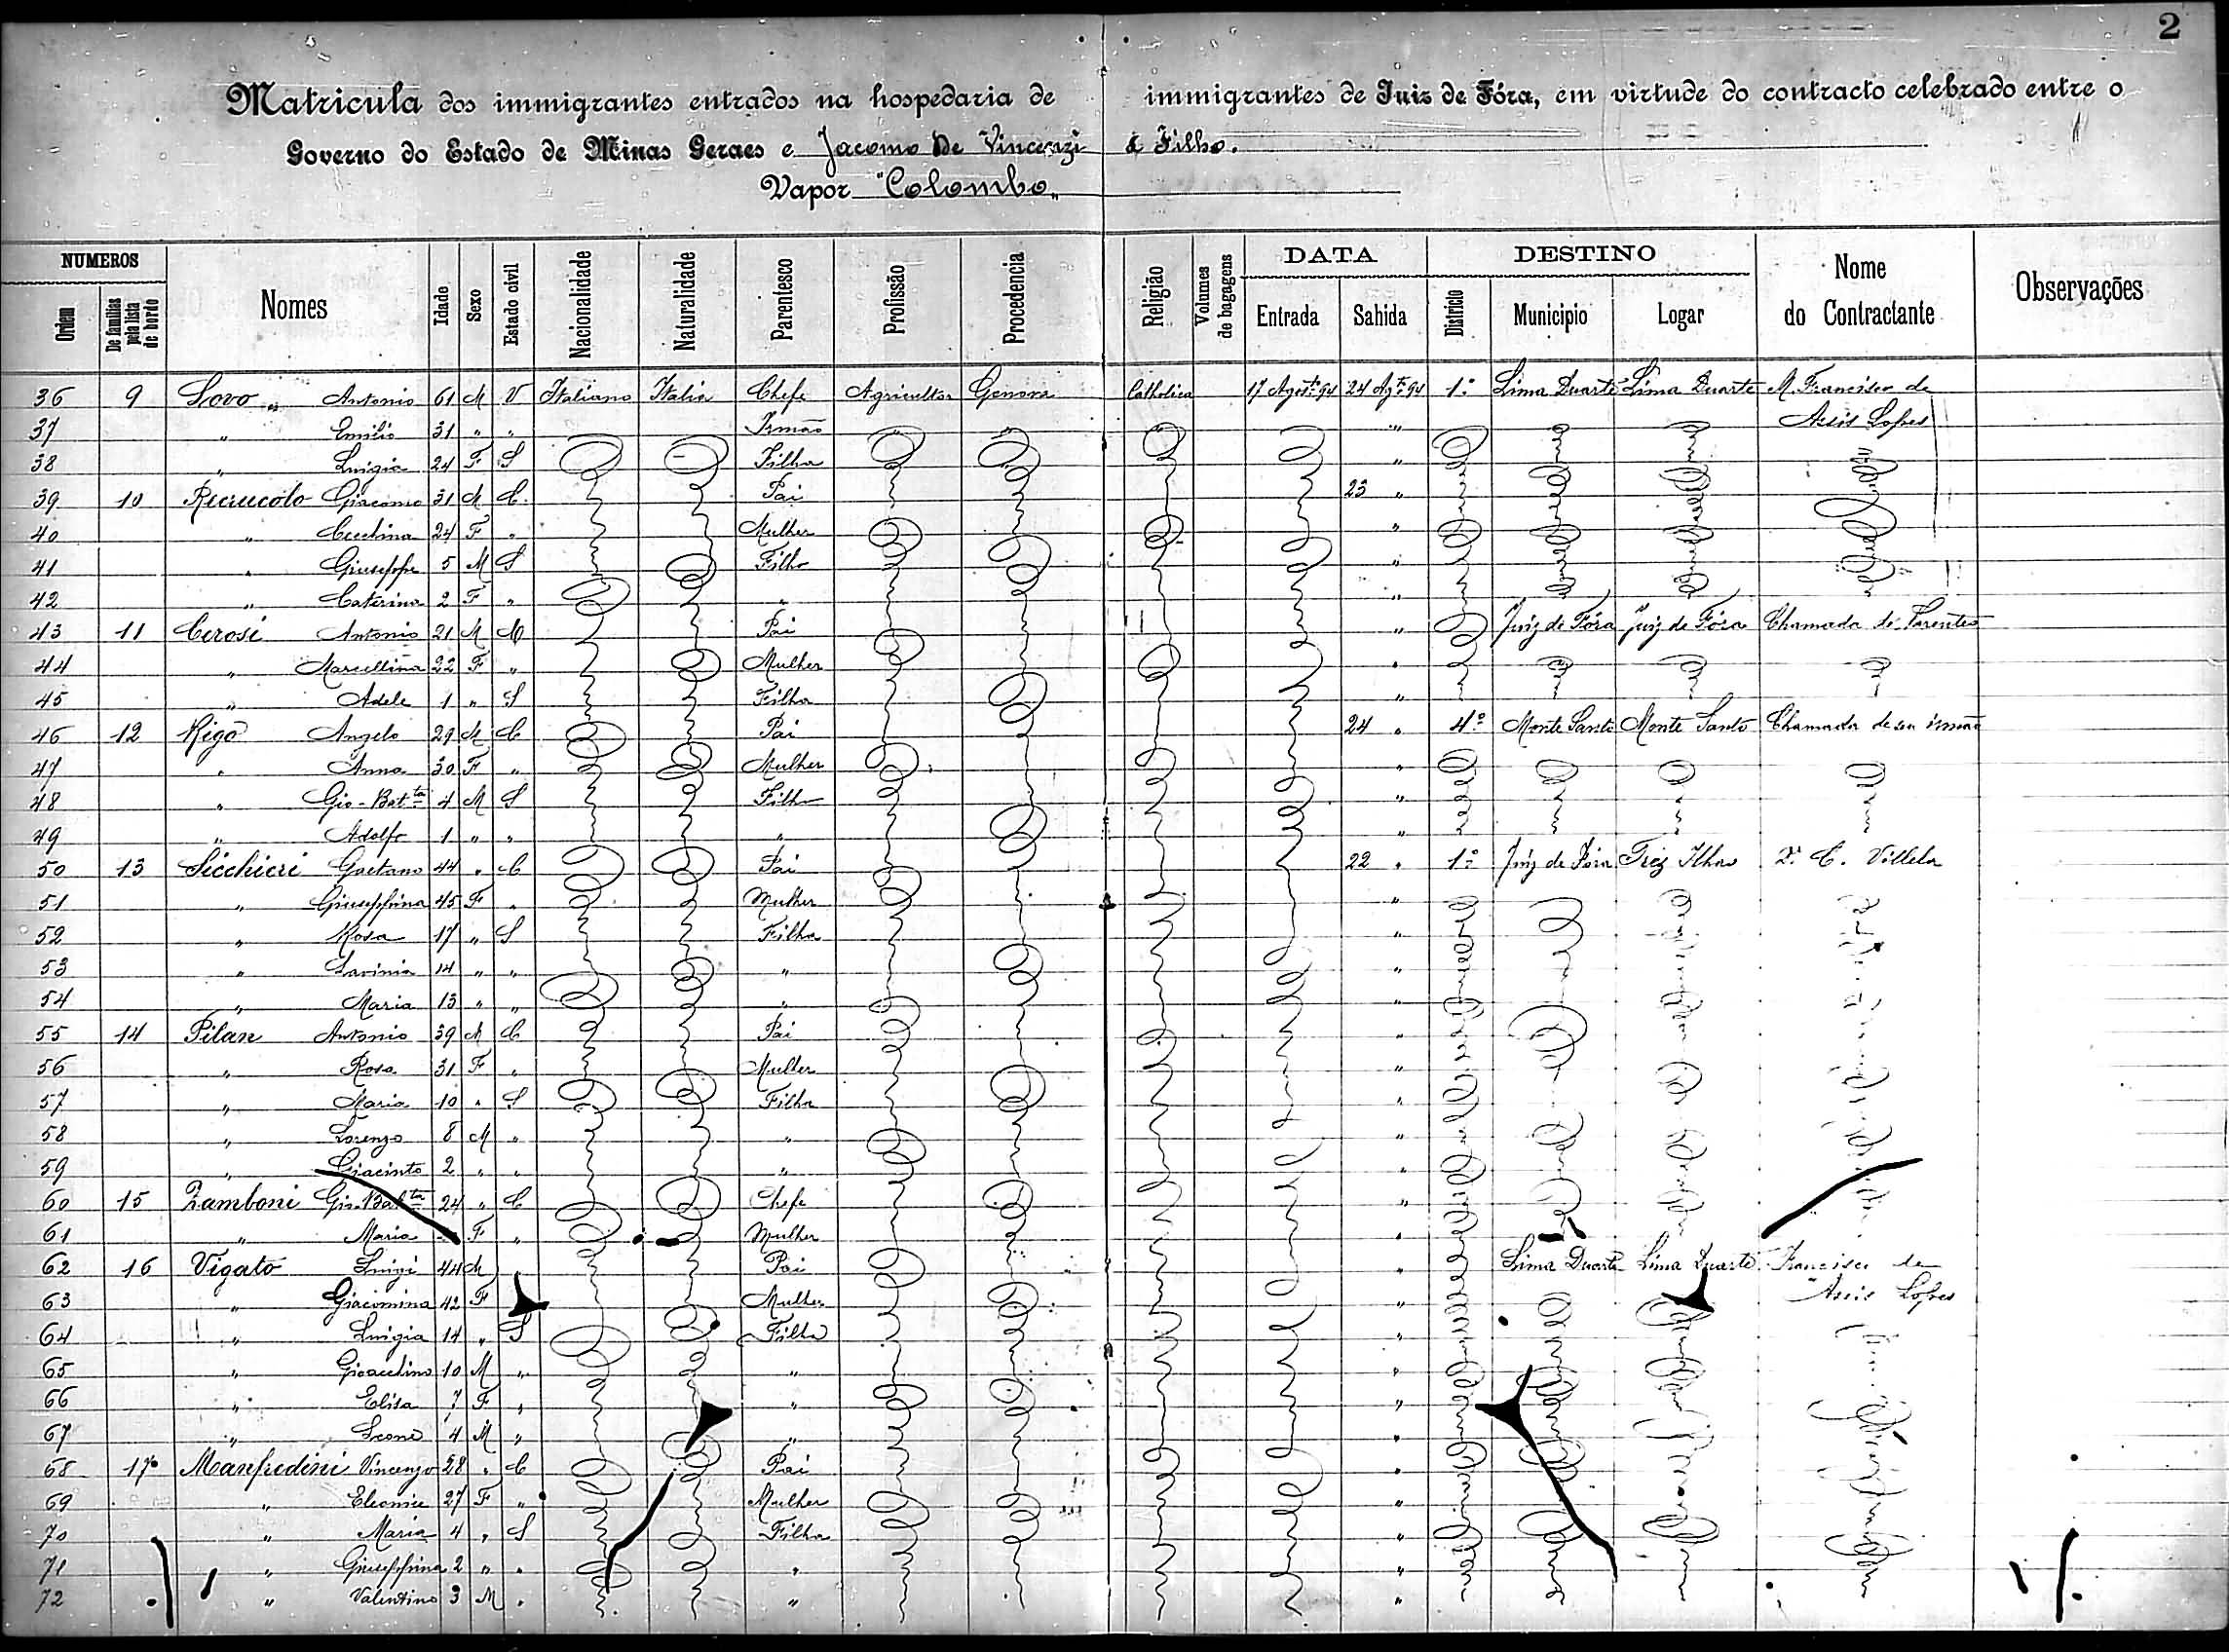 2
Matricula dos immigrantes entrados na hospedaria de immigrantes de Juiz de Fóra, em virtude do contracto celebrado entre o
Governo do Estado de Minas Geraes e Jacomo De Vincenzi & Filho.
Vapor "Colombo"
NUMEROS DATA DESTINO
Ordem De familias pela lista de bordo Nomes Idade Sexo Estado civil Nacionalidade Naturalidade Parentesco Profissão Procedencia Religião Volumes de bagagens Entrada Sahida Districto Municipio Logar Nome do Contractante Observações
36 9 Lovo " Antonio 61 M V Italiano Italia Chefe Agricultor Genova Catholica 17 Agosto 94 24 Agto 94 1º Lima Duarte Lima Duarte M. Francisco de
37 " Emilio 31 " " Irmão " " " Assis Lopes
38 " Luigia 24 F S Filha "
39 10 Giacomo 31 M C. Pai 23 "
40 " 24 F " Mulher "
41 " Giuseppe 5 M S Filho "
42 " Caterina 2 F " " "
43 11 Cerosi Antonio 21 M Pai " Juiz de Fóra Juiz de Fóra Chamada de Parentes
44 " Marcellina 22 F " Mulher "
45 " Adele 1 " S Filha "
46 12 Rigo Angelo 29 M C Pai 24 " 4º Monte Santo Monte Santo Chamada de seu irmão
47 " Anna 30 F " Mulher "
48 " Gio-Batta 4 M S Filho "
49 " Adolfo 1 " " " "
50 13 Sicchieri Gaetano 44 " C Pai 22 " 1º Juiz de Fóra Trez Ilhas C. Villela
51 " Giuseppina 45 F " Mulher "
52 " Rosa 17 " S Filha "
53 " Lavinia 14 " " " "
54 " Maria 13 " " " "
55 14 Pilan Antonio 39 M C Pai "
56 " Rosa 31 F " Mulher "
57 " Maria 10 " S Filha "
58 " Lorenzo 8 M " " "
59 " Giacinto 2 " " " "
60 15 Zamboni Gio-Batta 24 " C Chefe "
61 " Maria F " Mulher "
62 16 Vigato Luigi 44 M " Pai " Lima Duarte Lima Duarte Francisco de
63 " Giacomina 42 F Mulher " Assis Lopes
64 " Luigia 14 " S Filha "
65 " Gioacchino 10 M " " "
66 " Elisa 7 F " " "
67 " Leone 4 M " " "
68 17 Manfredini Vincenzo 28 " C Pai "
69 " Eleonice 27 F " Mulher "
70 " Maria 4 " S Filha "
71 " Giuseppina 2 " " " "
72 " Valentino 3 M " " "